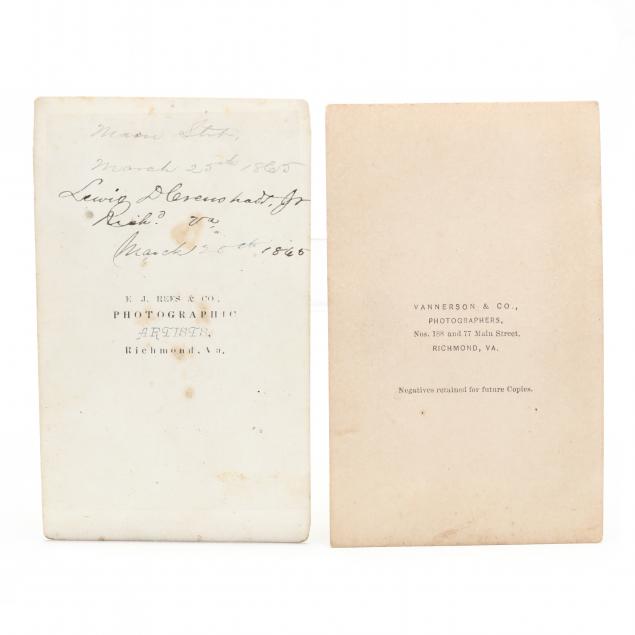 Main Strt,
March 25th 1865
Lewis D Crenshaw, Jr
Richd Va
March 20th 1865
E. J. REES & CO.,
PHOTOGRAPHIC
ARTISTS,
Richmond, Va.
VANNERSON & CO.,
PHOTOGRAPHERS,
Nos. 188 and 77 Main Street,
RICHMOND, VA.
Negatives retained for future Copies.